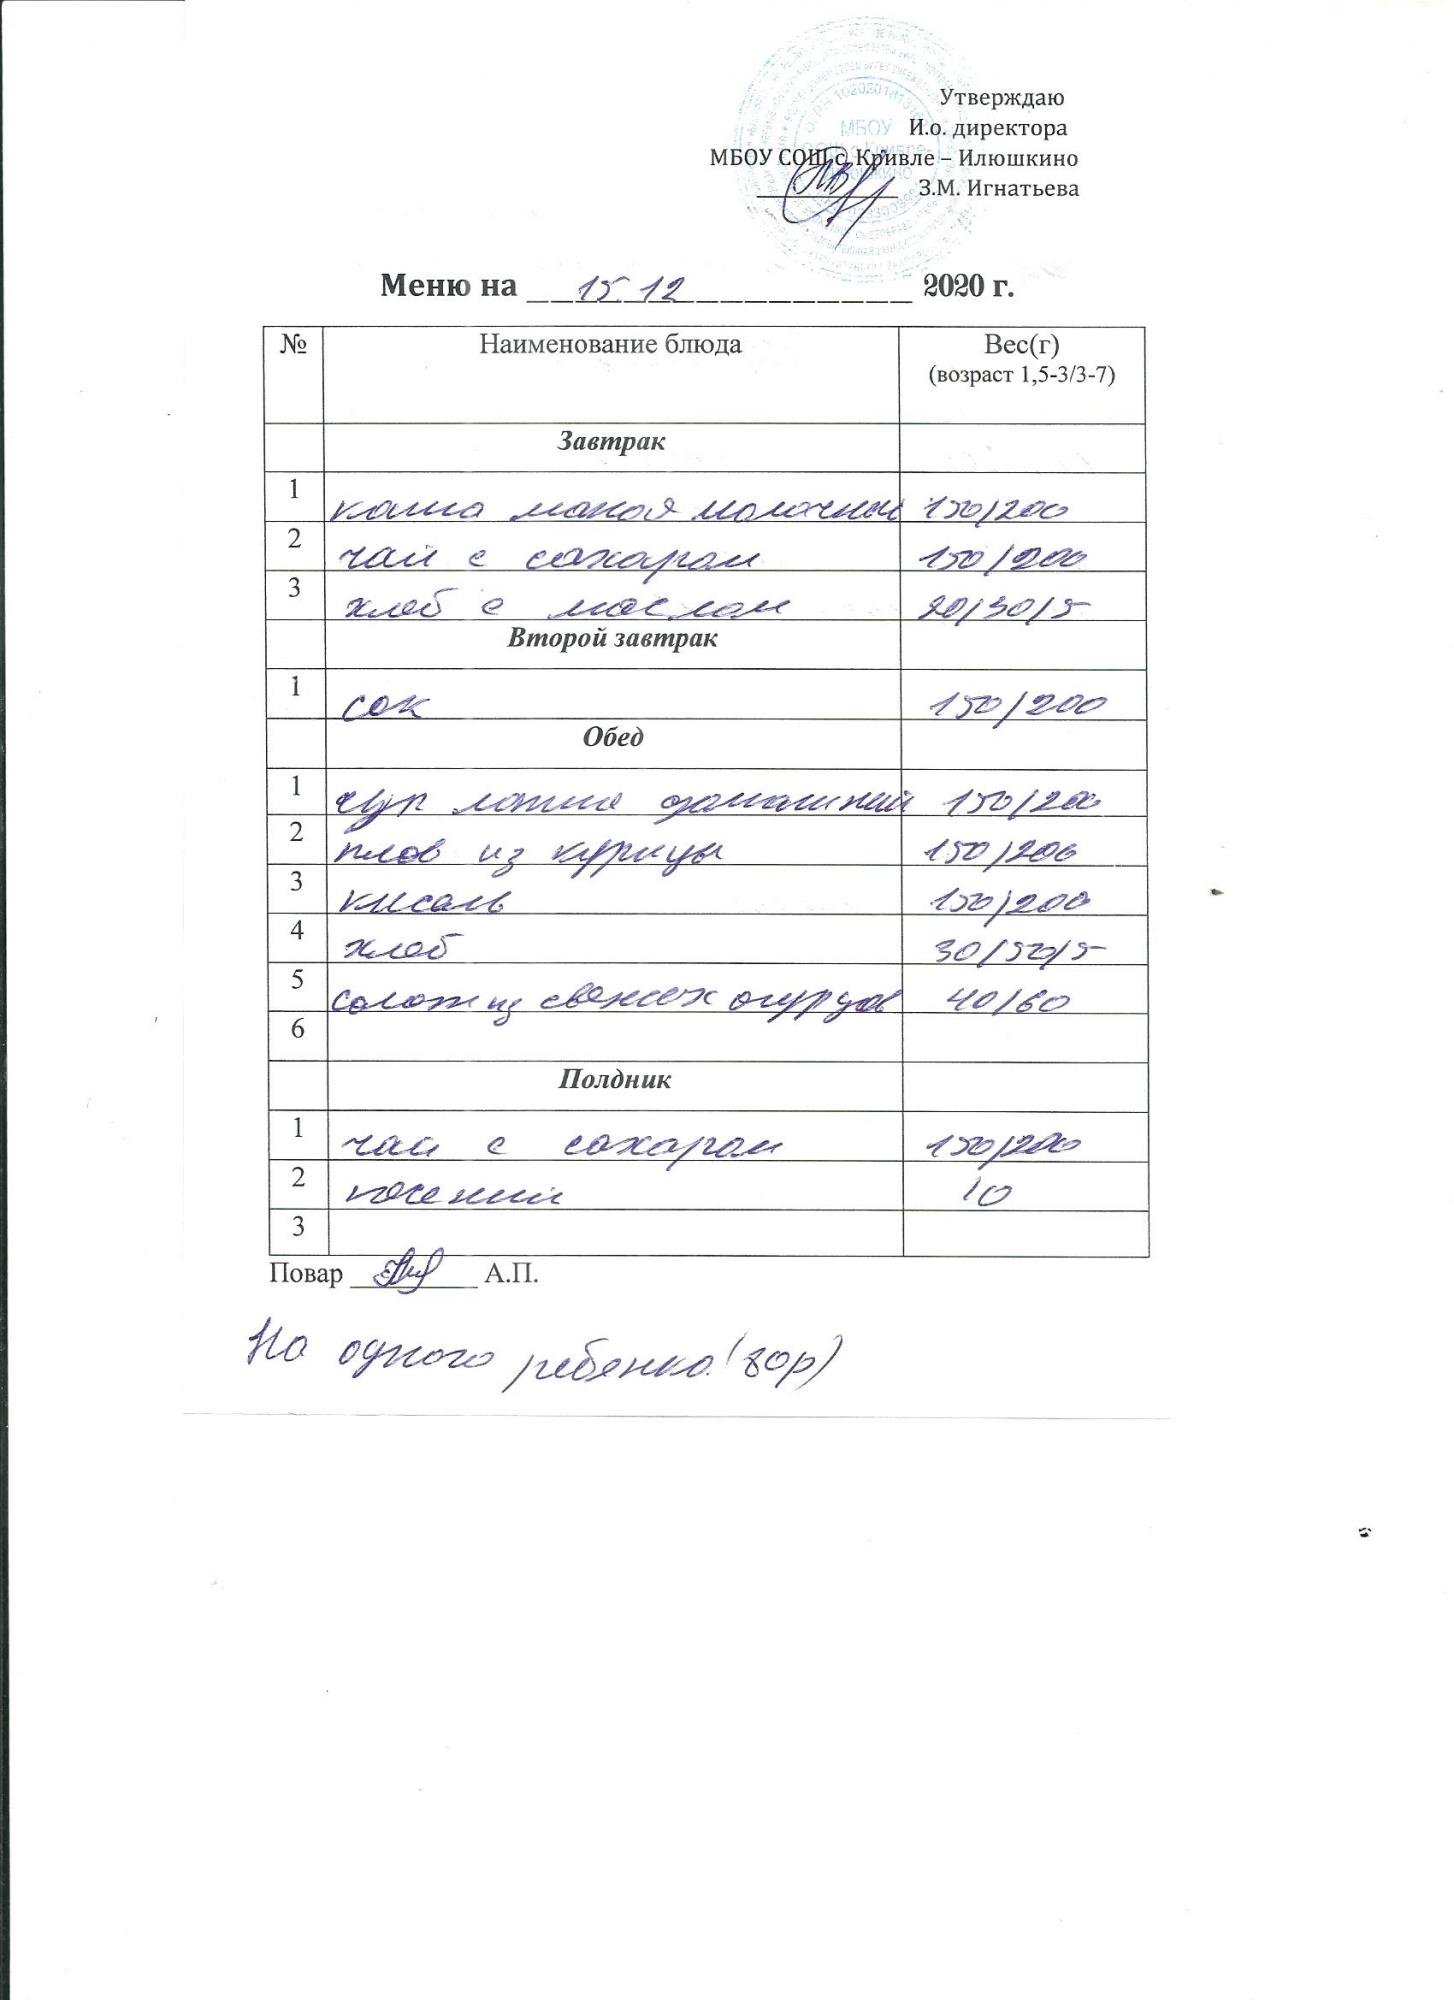 Утверждаю
И.о. директора
МБОУ СОШ с. Кривле – Илюшкино
З.М. Игнатьева
МБОУ
Меню на 15.12 2020 г.
№ Наименование блюда Вес(г)
(возраст 1,5-3/3-7)
Завтрак
1 каша маная молочный 150/200
2 чай с сахаром 150/200
3 хлеб с маслом 20/30/5
Второй завтрак
1 сок 150/200
Обед
1 суп лапша домашний 150/200
2 плов из курицы 150/200
3 кисель 150/200
4 хлеб 30/50/5
5 салат из свежих огурцов 40/60
6
Полдник
1 чай с сахаром 150/200
2 печений 10
3
Повар А.П.
На одного ребенка (80р)